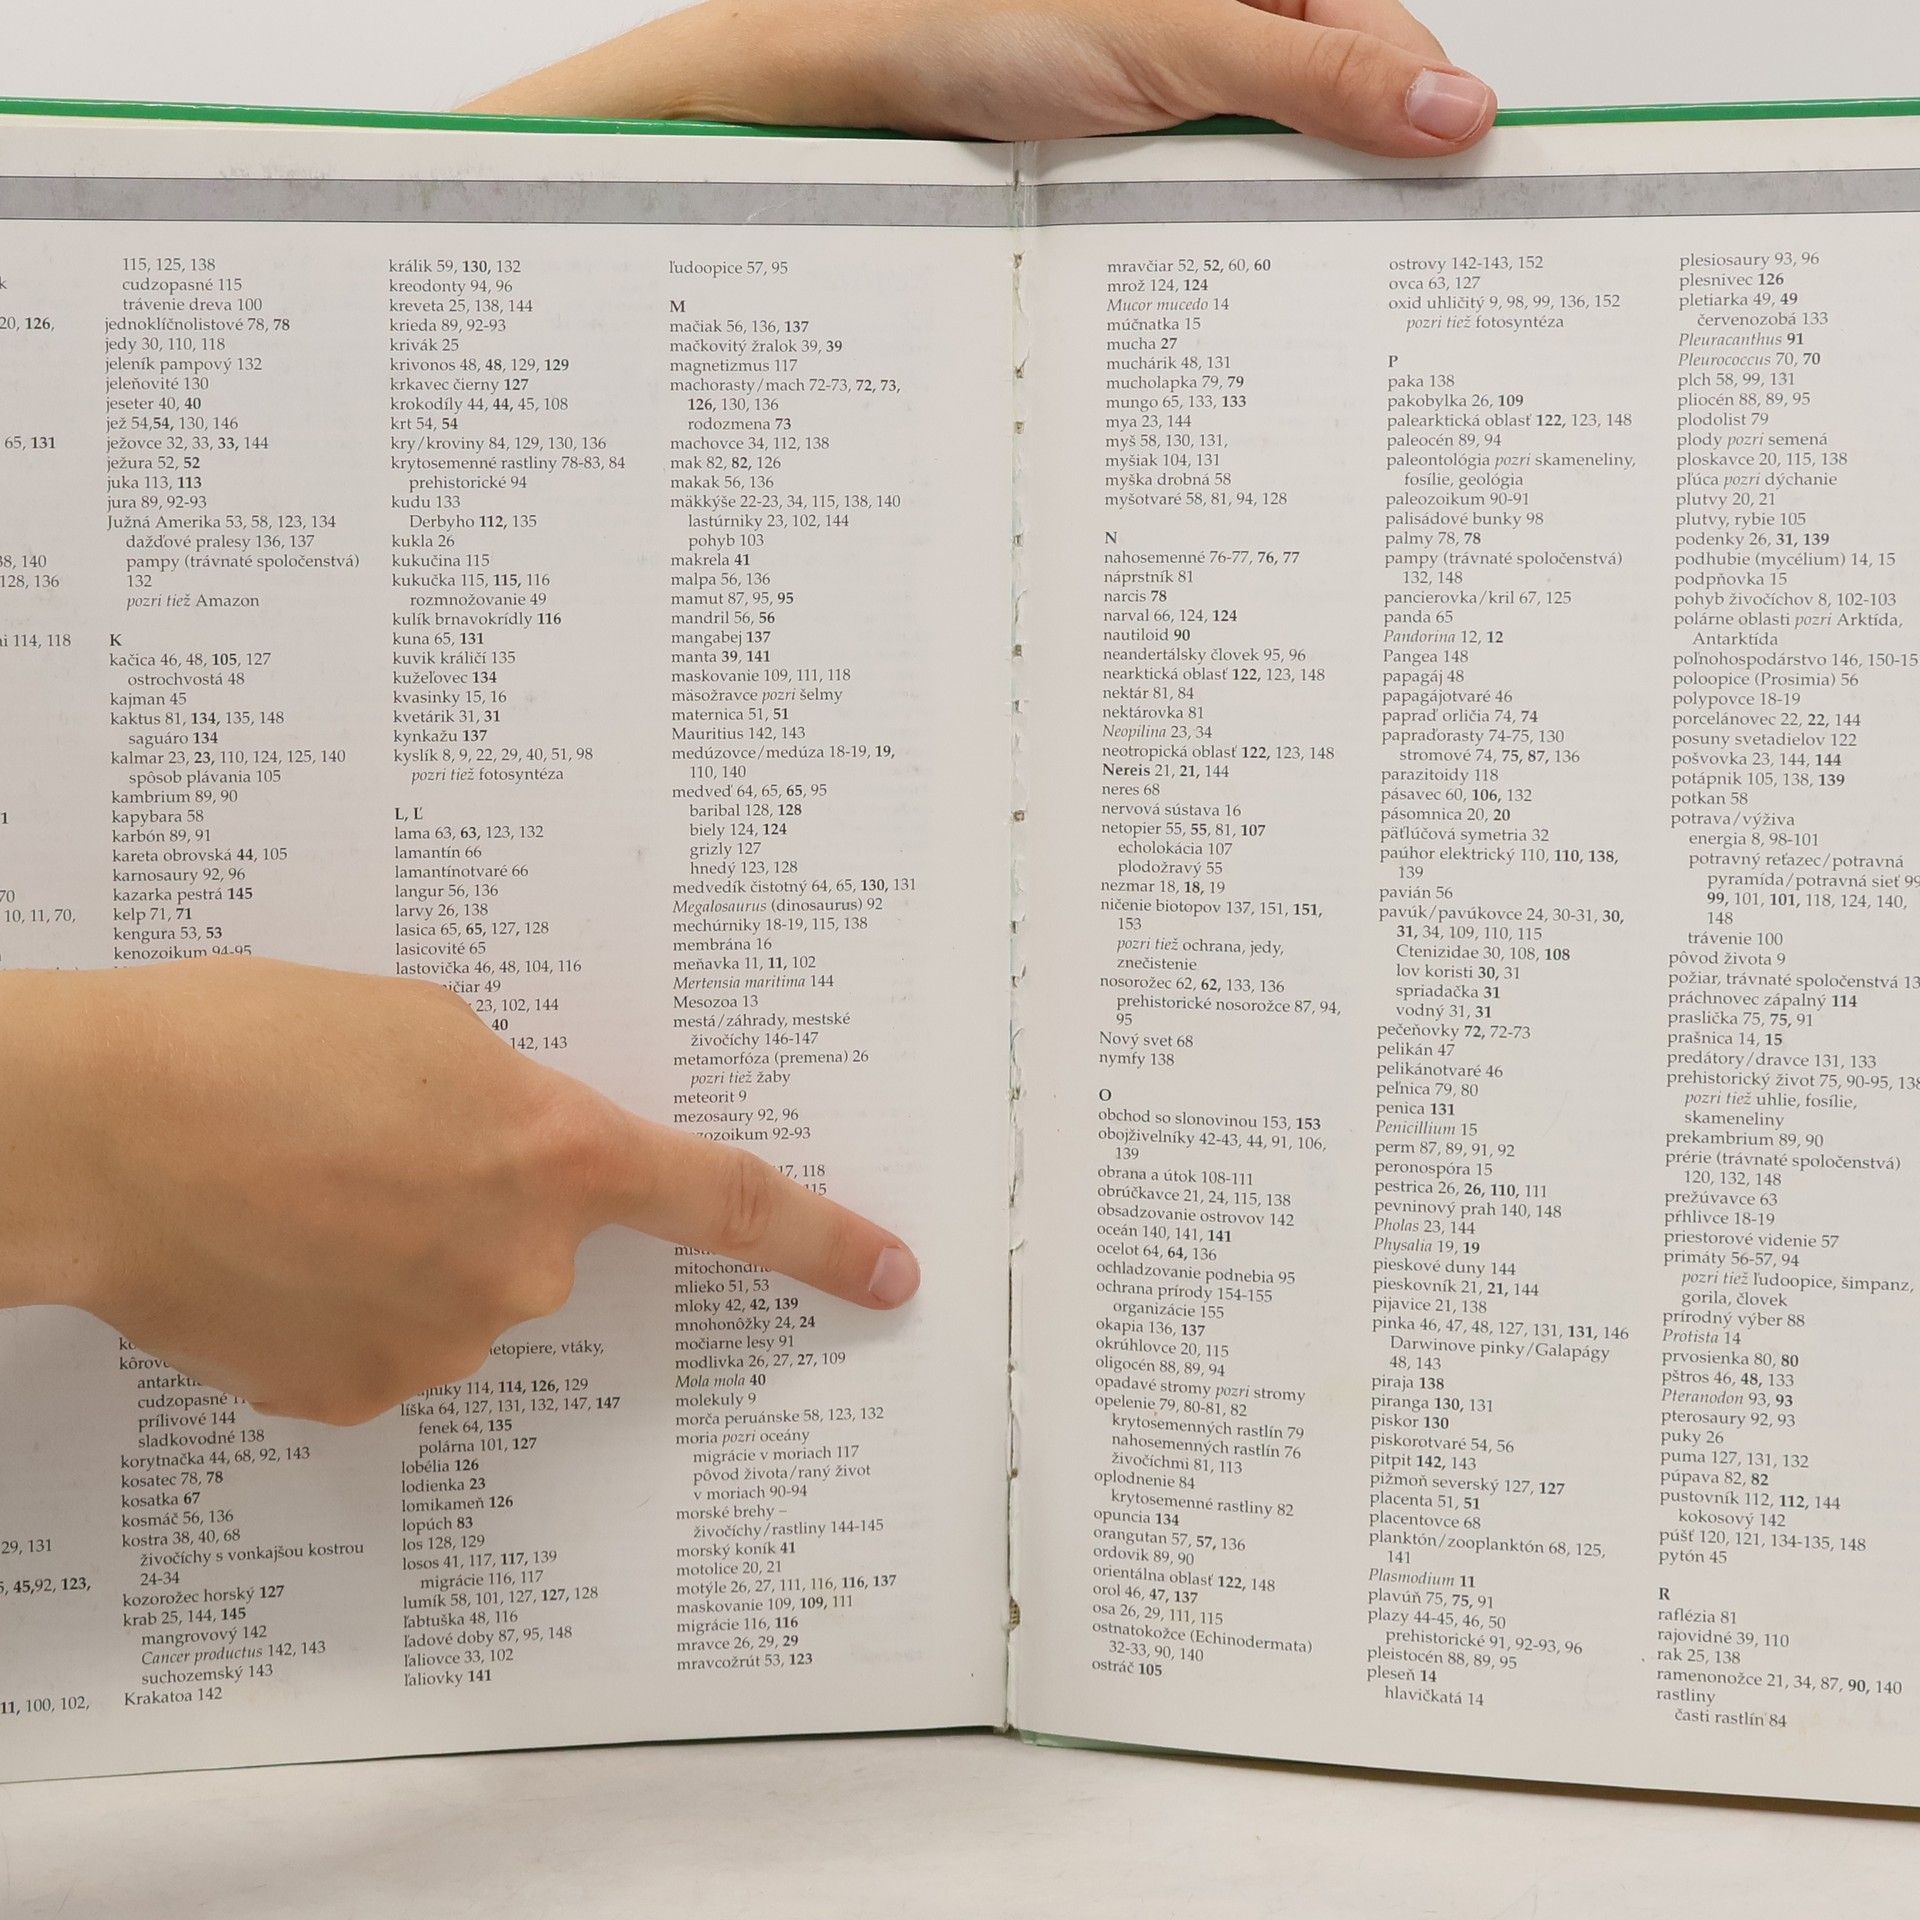 k
20, 126,
65, 131
38, 140
128, 136
ai 114, 118
1
70
10, 11, 70,
29, 131
5, 45,92, 123,
11, 100, 102,
115, 125, 138
cudzopasné 115
trávenie dreva 100
jednoklíčnolistové 78, 78
jedy 30, 110, 118
jeleník pampový 132
jeleňovité 130
jeseter 40, 40
jež 54,54, 130, 146
ježovce 32, 33, 33, 144
ježura 52, 52
juka 113, 113
jura 89, 92-93
Južná Amerika 53, 58, 123, 134
dažďové pralesy 136, 137
pampy (trávnaté spoločenstvá)
132
pozri tiež Amazon
K
kačica 46, 48, 105, 127
ostrochvostá 48
kajman 45
kaktus 81, 134, 135, 148
saguáro 134
kalmar 23, 23, 110, 124, 125, 140
spôsob plávania 105
kambrium 89, 90
kapybara 58
karbón 89, 91
kareta obrovská 44, 105
karnosaury 92, 96
kazarka pestrá 145
kelp 71, 71
kengura 53, 53
kenozoikum 94-95
cudzopasné
prílivové 144
sladkovodné 138
korytnačka 44, 68, 92, 143
kosatec 78, 78
kosatka 67
kosmáč 56, 136
kostra 38, 40, 68
živočíchy s vonkajšou kostrou
24-34
kozorožec horský 127
krab 25, 144, 145
mangrovový 142
Cancer productus 142, 143
suchozemský 143
Krakatoa 142
králik 59, 130, 132
kreodonty 94, 96
kreveta 25, 138, 144
krieda 89, 92-93
krivák 25
krivonos 48, 48, 129, 129
krkavec čierny 127
krokodíly 44, 44, 45, 108
krt 54, 54
kry/kroviny 84, 129, 130, 136
krytosemenné rastliny 78-83, 84
prehistorické 94
kudu 133
Derbyho 112, 135
kukla 26
kukučina 115
kukučka 115, 115, 116
rozmnožovanie 49
kulík brnavokrídly 116
kuna 65, 131
kuvik králičí 135
kužeľovec 134
kvasinky 15, 16
kvetárik 31, 31
kynkažu 137
kyslík 8, 9, 22, 29, 40, 51, 98
pozri tiež fotosyntéza
L, Ľ
lama 63, 63, 123, 132
lamantín 66
lamantínotvaré 66
langur 56, 136
larvy 26, 138
lasica 65, 65, 127, 128
lasicovité 65
lastovička 46, 48, 104, 116
49
23, 102, 144
40
142, 143
netopiere, vtáky,
114, 114, 126, 129
líška 64, 127, 131, 132, 147, 147
fenek 64, 135
polárna 101, 127
lobélia 126
lodienka 23
lomikameň 126
lopúch 83
los 128, 129
losos 41, 117, 117, 139
migrácie 116, 117
lumík 58, 101, 127, 127, 128
ľabtuška 48, 116
ľadové doby 87, 95, 148
ľaliovce 33, 102
ľaliovky 141
ľudoopice 57, 95
M
mačiak 56, 136, 137
mačkovitý žralok 39, 39
magnetizmus 117
machorasty/mach 72-73, 72, 73,
126, 130, 136
rodozmena 73
machovce 34, 112, 138
mak 82, 82, 126
makak 56, 136
mäkkýše 22-23, 34, 115, 138, 140
lastúrniky 23, 102, 144
pohyb 103
makrela 41
malpa 56, 136
mamut 87, 95, 95
mandril 56, 56
mangabej 137
manta 39, 141
maskovanie 109, 111, 118
mäsožravce pozri šelmy
maternica 51, 51
Mauritius 142, 143
medúzovce/medúza 18-19, 19,
110, 140
medveď 64, 65, 65, 95
baribal 128, 128
biely 124, 124
grizly 127
hnedý 123, 128
medvedík čistotný 64, 65, 130, 131
Megalosaurus (dinosaurus) 92
mechúrniky 18-19, 115, 138
membrána 16
meňavka 11, 11, 102
Mertensia maritima 144
Mesozoa 13
mestá/záhrady, mestské
živočíchy 146-147
metamorfóza (premena) 26
pozri tiež žaby
meteorit 9
mezosaury 92, 96
92-93
117, 118
115
mlieko 51, 53
mloky 42, 42, 139
mnohonôžky 24, 24
močiarne lesy 91
modlivka 26, 27, 27, 109
Mola mola 40
molekuly 9
morča peruánske 58, 123, 132
moria pozri oceány
migrácie v moriach 117
pôvod života/raný život
v moriach 90-94
morské brehy –
živočíchy/rastliny 144-145
morský koník 41
motolice 20, 21
motýle 26, 27, 111, 116, 116, 137
maskovanie 109, 109, 111
migrácie 116, 116
mravce 26, 29, 29
mravcožrút 53, 123
mravčiar 52, 52, 60, 60
mrož 124, 124
Mucor mucedo 14
múčnatka 15
mucha 27
muchárik 48, 131
mucholapka 79, 79
mungo 65, 133, 133
mya 23, 144
myš 58, 130, 131,
myšiak 104, 131
myška drobná 58
myšotvaré 58, 81, 94, 128
N
nahosemenné 76-77, 76, 77
náprstník 81
narcis 78
narval 66, 124, 124
nautiloid 90
neandertálsky človek 95, 96
nearktická oblasť 122, 123, 148
nektár 81, 84
nektárovka 81
Neopilina 23, 34
neotropická oblasť 122, 123, 148
Nereis 21, 21, 144
neres 68
nervová sústava 16
netopier 55, 55, 81, 107
echolokácia 107
plodožravý 55
nezmar 18, 18, 19
ničenie biotopov 137, 151, 151,
153
pozri tiež ochrana, jedy,
znečistenie
nosorožec 62, 62, 133, 136
prehistorické nosorožce 87, 94,
95
Nový svet 68
nymfy 138
O
obchod so slonovinou 153, 153
obojživelníky 42-43, 44, 91, 106,
139
obrana a útok 108-111
obrúčkavce 21, 24, 115, 138
obsadzovanie ostrovov 142
oceán 140, 141, 141
ocelot 64, 64, 136
ochladzovanie podnebia 95
ochrana prírody 154-155
organizácie 155
okapia 136, 137
okrúhlovce 20, 115
oligocén 88, 89, 94
opadavé stromy pozri stromy
opelenie 79, 80-81, 82
krytosemenných rastlín 79
nahosemenných rastlín 76
živočíchmi 81, 113
oplodnenie 84
krytosemenné rastliny 82
opuncia 134
orangutan 57, 57, 136
ordovik 89, 90
orientálna oblasť 122, 148
orol 46, 47, 137
osa 26, 29, 111, 115
ostnatokožce (Echinodermata)
32-33, 90, 140
ostráč 105
ostrovy 142-143, 152
ovca 63, 127
oxid uhličitý 9, 98, 99, 136, 152
pozri tiež fotosyntéza
P
paka 138
pakobylka 26, 109
palearktická oblasť 122, 123, 148
paleocén 89, 94
paleontológia pozri skameneliny,
fosílie, geológia
paleozoikum 90-91
palisádové bunky 98
palmy 78, 78
pampy (trávnaté spoločenstvá)
132, 148
pancierovka/kril 67, 125
panda 65
Pandorina 12, 12
Pangea 148
papagáj 48
papagájotvaré 46
papraď orličia 74, 74
papraďorasty 74-75, 130
stromové 74, 75, 87, 136
parazitoidy 118
pásavec 60, 106, 132
pásomnica 20, 20
päťlúčová symetria 32
paúhor elektrický 110, 110, 138,
139
pavián 56
pavúk/pavúkovce 24, 30-31, 30,
31, 34, 109, 110, 115
Ctenizidae 30, 108, 108
lov koristi 30, 31
spriadačka 31
vodný 31, 31
pečeňovky 72, 72-73
pelikán 47
pelikánotvaré 46
peľnica 79, 80
penica 131
Penicillium 15
perm 87, 89, 91, 92
peronospóra 15
pestrica 26, 26, 110, 111
pevninový prah 140, 148
Pholas 23, 144
Physalia 19, 19
pieskové duny 144
pieskovník 21, 21, 144
pijavice 21, 138
pinka 46, 47, 48, 127, 131, 131, 146
Darwinove pinky/Galapágy
48, 143
piraja 138
piranga 130, 131
piskor 130
piskorotvaré 54, 56
pitpit 142, 143
pižmoň severský 127, 127
placenta 51, 51
placentovce 68
planktón/zooplanktón 68, 125,
141
Plasmodium 11
plavúň 75, 75, 91
plazy 44-45, 46, 50
prehistorické 91, 92-93, 96
pleistocén 88, 89, 95
pleseň 14
hlavičkatá 14
plesiosaury 93, 96
plesnivec 126
pletiarka 49, 49
červenozobá 133
Pleuracanthus 91
Pleurococcus 70, 70
plch 58, 99, 131
pliocén 88, 89, 95
plodolist 79
plody pozri semená
ploskavce 20, 115, 138
pľúca pozri dýchanie
plutvy 20, 21
plutvy, rybie 105
podenky 26, 31, 139
podhubie (mycélium) 14, 15
podpňovka 15
pohyb živočíchov 8, 102-103
polárne oblasti pozri Arktída,
Antarktída
poľnohospodárstvo 146, 150-15
poloopice (Prosimia) 56
polypovce 18-19
porcelánovec 22, 22, 144
posuny svetadielov 122
pošvovka 23, 144, 144
potápnik 105, 138, 139
potkan 58
potrava/výživa
energia 8, 98-101
potravný reťazec/potravná
pyramída/potravná sieť 99
99, 101, 101, 118, 124, 140,
148
trávenie 100
pôvod života 9
požiar, trávnaté spoločenstvá 13
práchnovec zápalný 114
praslička 75, 75, 91
prašnica 14, 15
predátory/dravce 131, 133
prehistorický život 75, 90-95, 138
pozri tiež uhlie, fosílie,
skameneliny
prekambrium 89, 90
prérie (trávnaté spoločenstvá)
120, 132, 148
prežúvavce 63
pŕhlivce 18-19
priestorové videnie 57
primáty 56-57, 94
pozri tiež ľudoopice, šimpanz,
gorila, človek
prírodný výber 88
Protista 14
prvosienka 80, 80
pštros 46, 48, 133
Pteranodon 93, 93
pterosaury 92, 93
puky 26
puma 127, 131, 132
púpava 82, 82
pustovník 112, 112, 144
kokosový 142
púšť 120, 121, 134-135, 148
pytón 45
R
raflézia 81
rajovidné 39, 110
rak 25, 138
ramenonožce 21, 34, 87, 90, 140
rastliny
časti rastlín 84